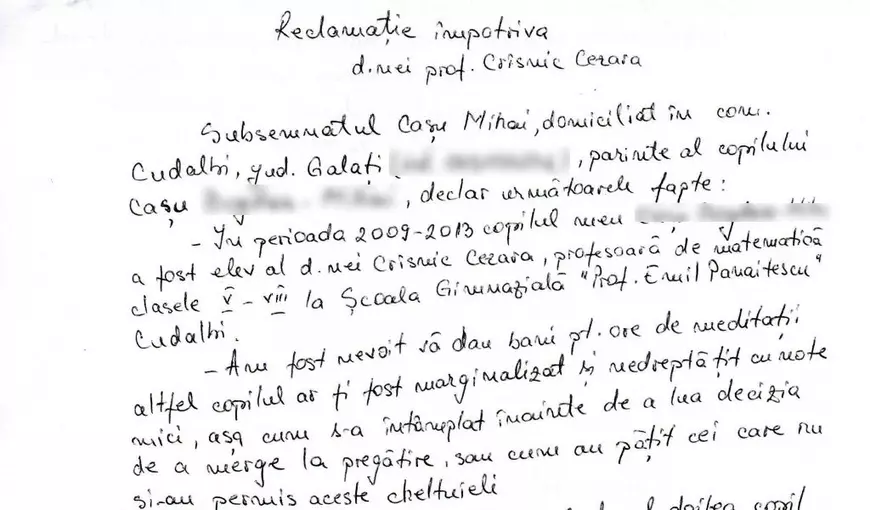 Reclamație împotriva
d.nei prof. Crismic Cezara
Subsemnatul Cașu Mihai, domiciliat în com.
Cudalbi, jud. Galați, parinte al copilului
Cașu, declar următoarele fapte:
- În perioada 2009-2013 copilul meu
a fost elev al d.nei Crismic Cezara, profesoară de matematică
clasele V - VIII la Școala Gimnazială "Prof. Emil Panaitescu"
Cudalbi.
- Am fost nevoit să dau bani pt. ore de meditații
altfel copilul ar fi fost marginalizat și nedreptățit cu note
mici, așa cum s-a întâmplat înainte de a lua decizia
de a merge la pregătire, sau cum au pățit cei care nu
și-au permis aceste cheltuieli
doilea copil